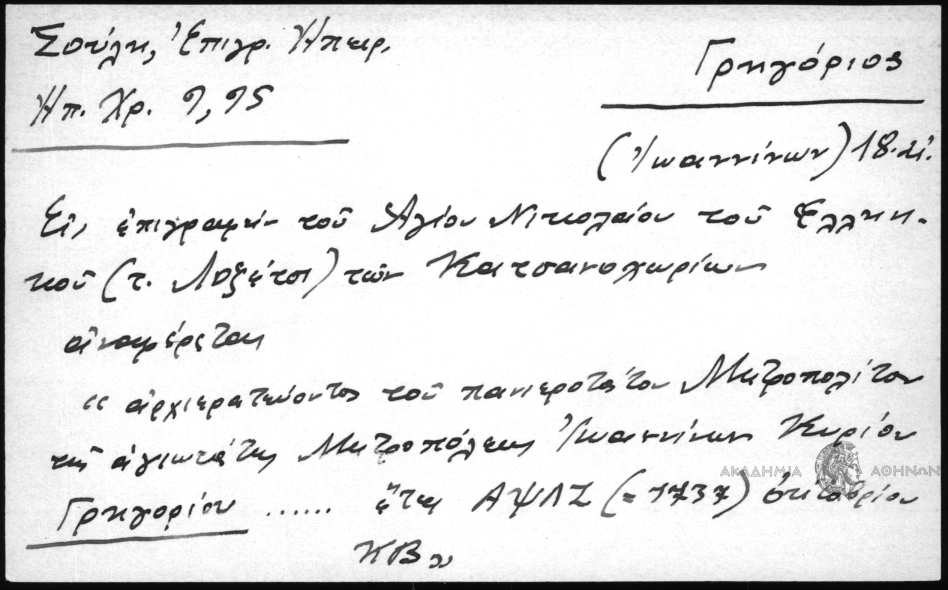 Σούλη, Ἐπιγρ. Ἠπειρ.
Ἠπ. Χρ. 9, 95
Γρηγόριος
(Ἰωαννίνων) 18. αἰ.
Εἰς ἐπιγραφὴν τοῦ Ἁγίου Νικολάου τοῦ Ἑλλην-
κοῦ (τ. Λοζέτσι) τῶν Κατσανοχωρίων
ἀναφέρεται
"ἀρχιερατεύοντος τοῦ πανιεροτάτου Μητροπολίτου
τῆς ἁγιωτάτης Μητροπόλεως Ἰωαννίνων Κυρίου
ΑΚΑΔΗΜΙΑ ΑΘΗΝΩΝ
Γρηγορίου ...... ἔτει ΑΨΛΖ (=1737) ὀκτωβρίου
ΚΒ"